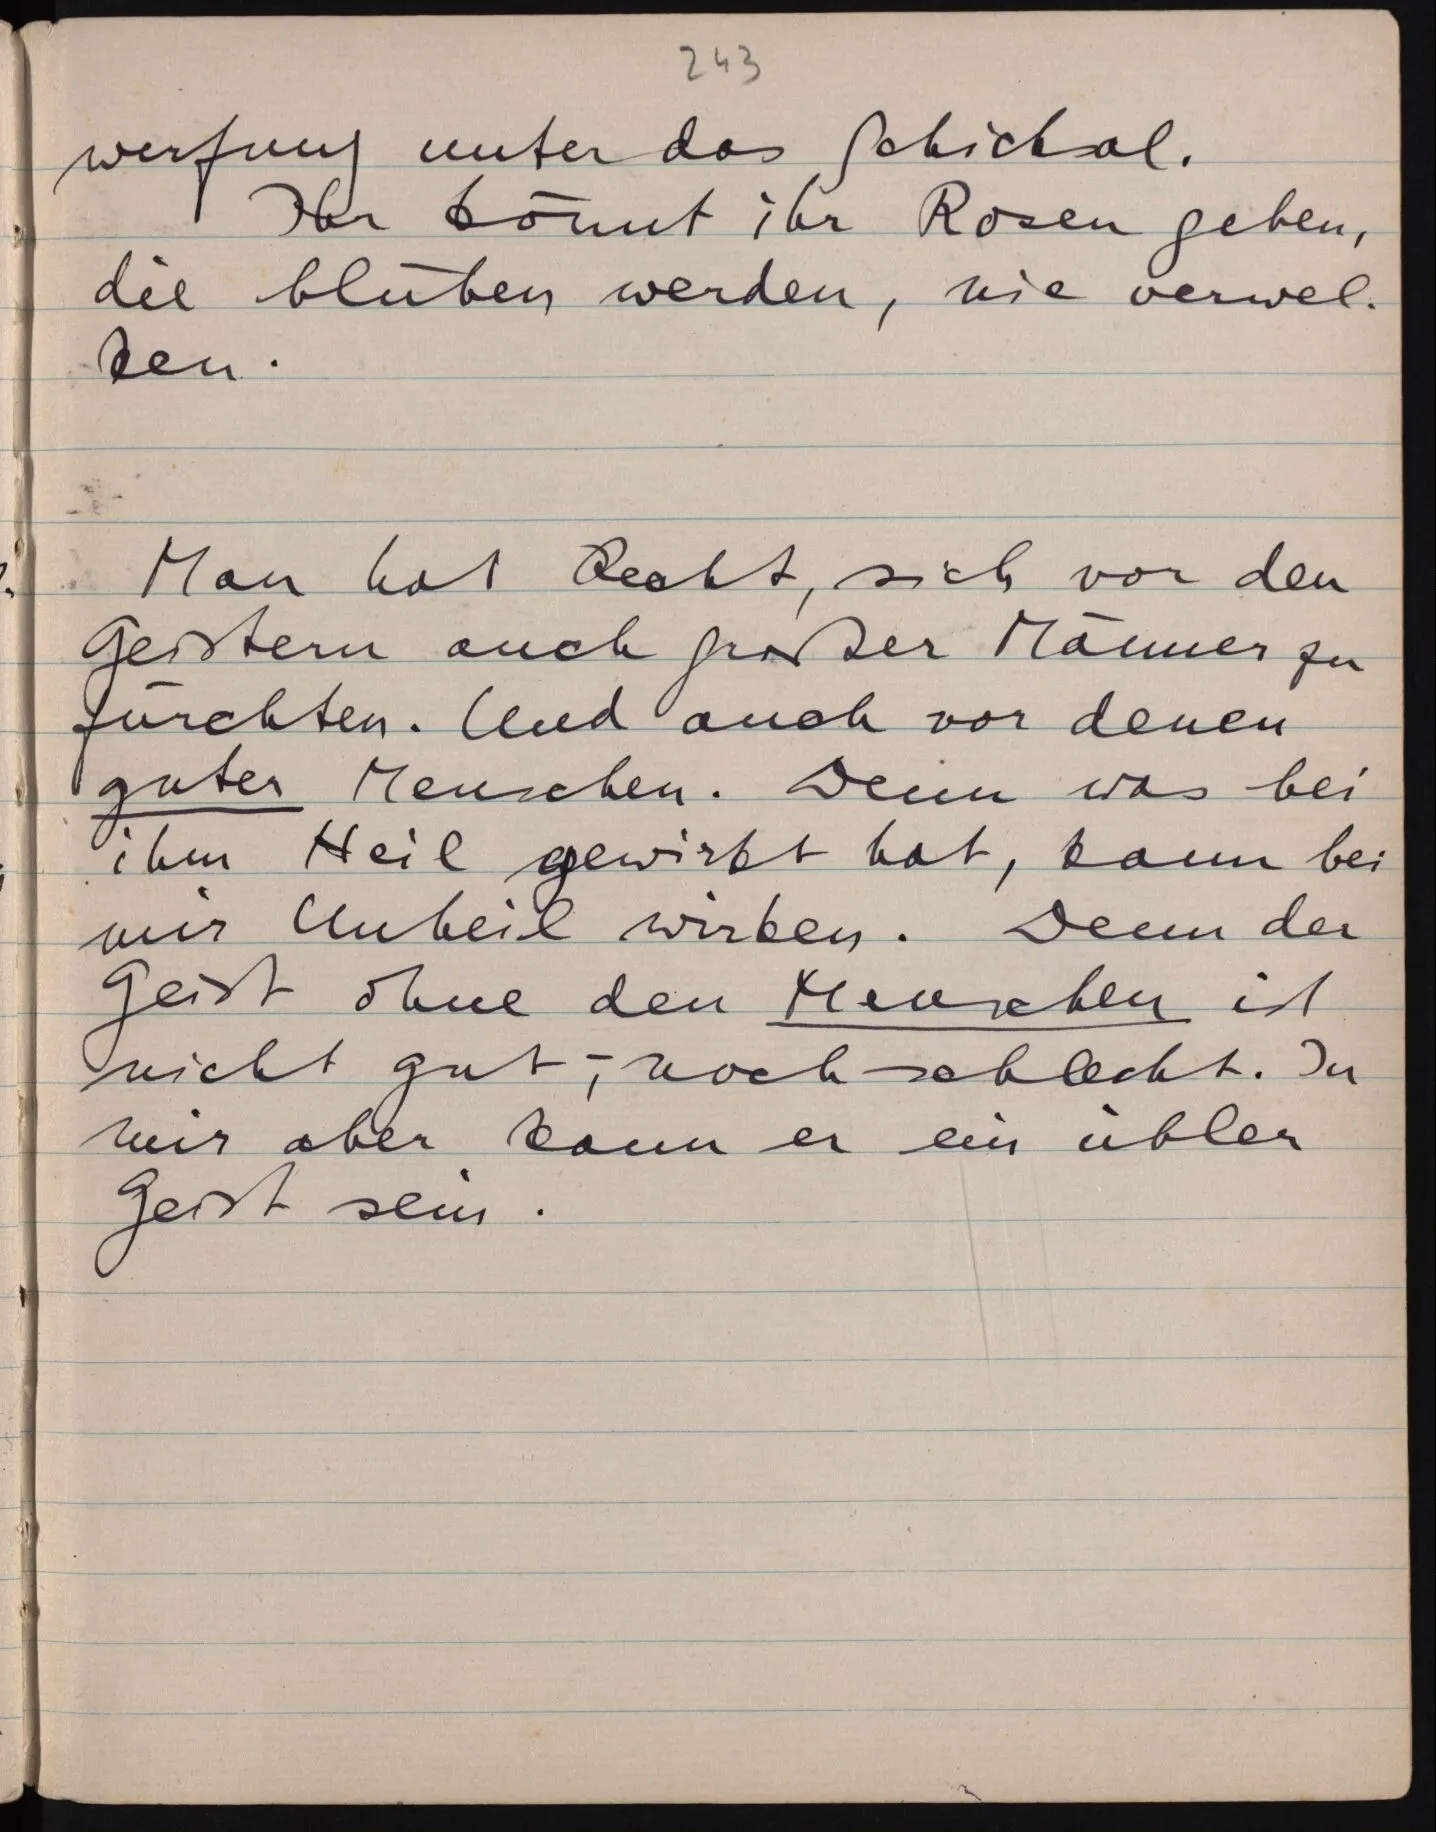 243
werfung unter das Schicksal.
Ihr könnt ihr Rosen geben,
die blühen werden, nie verwel-
ken.
Man hat Recht, sich vor den
Geistern auch großer Männer zu
fürchten. Und auch vor denen
guter Menschen. Denn was bei
ihm Heil gewirkt hat, kann bei
mir Unheil wirken. Denn der
Geist ohne den Menschen ist
nicht gut –, noch schlecht. In
mir aber kann er ein übler
Geist sein.